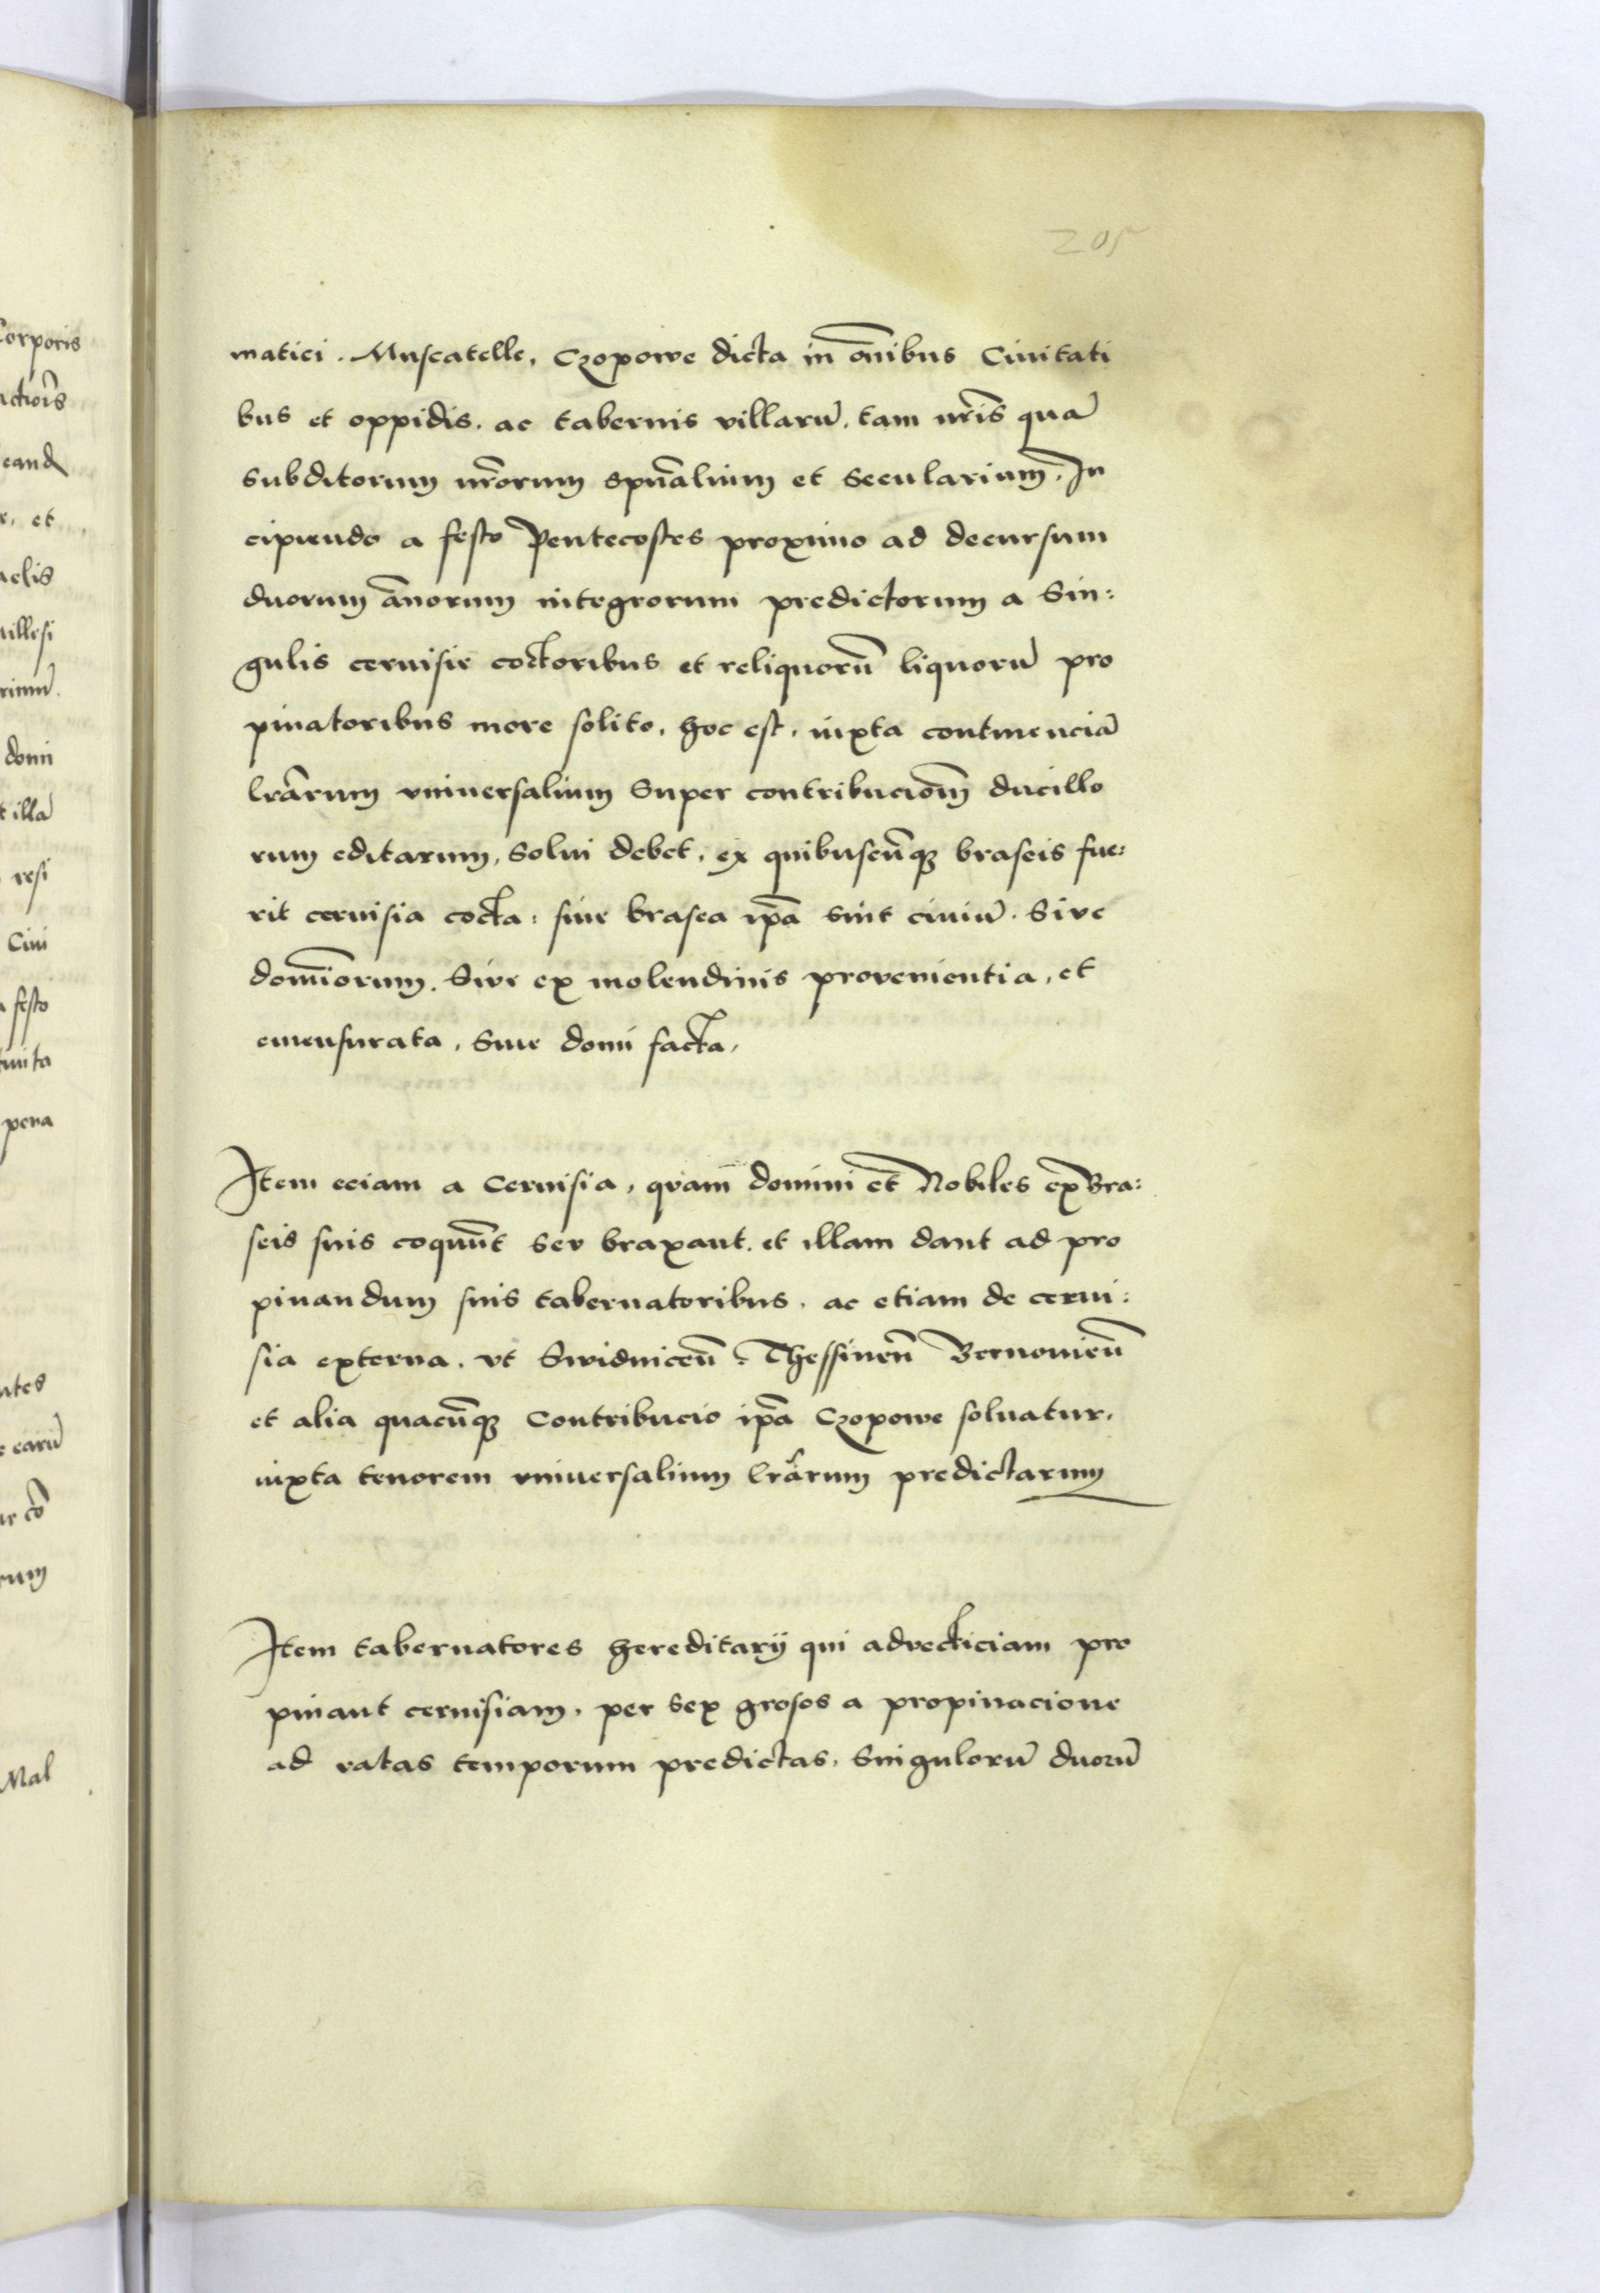 205
matici. Muscatelle, Czopowe dicta in om̄ibus Ciuitati
bus et oppidis. ac tabernis villarū. tam nr̄is quā
subditorum nr̄orum spūalium et secularium. In
cipiendo a festo Pentecostes proximo ad decursum
duorum ānorum integrorum predictorum a Sin:
gulis ceruisie coctoribus et reliquorū liquorū pro
pinatoribus more solito, hoc est, iuxta continenciā
lr̄arum vniuersalium Super contribuciom̄ ducillo
rum editarum, Solui debet, ex quibuscūqꝫ braseis fue:
rit ceruisia cocta: siue brasea ip̄a sint ciuiū. Sive
domīorum. Sive ex molendinis provenientia, et
emensurata, Siue domi facta,
Item eciam a Ceruisia, quam domini et Nobiles ex Bra:
seis suis coquūt Seu braxant. et illam dant ad pro
pinandum suis tabernatoribus. ac etiam de cerui:
sia externa. vt Swidniceň. Thessineň Bernouieň
et alia quacūqꝫ Contribucio ip̄a Czopowe soluatur,
iuxta tenorem vniuersalium lr̄arum predictarum
Item tabernatores hereditarij qui advecticiam pro
pinant ceruisiam, per Sex grosos a propinacione
ad ratas temporum predictas, Singulorū duorū
Corporis
eand
et
aelis
illesi
domi
illā
resi
Ciui
festo
uita
pena
ntes
earū
cō
rum
Mal